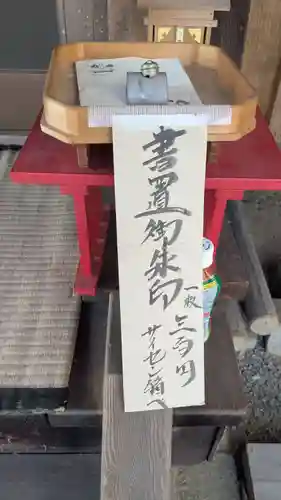 書置御朱印
一枚
三百円
サイセン箱へ